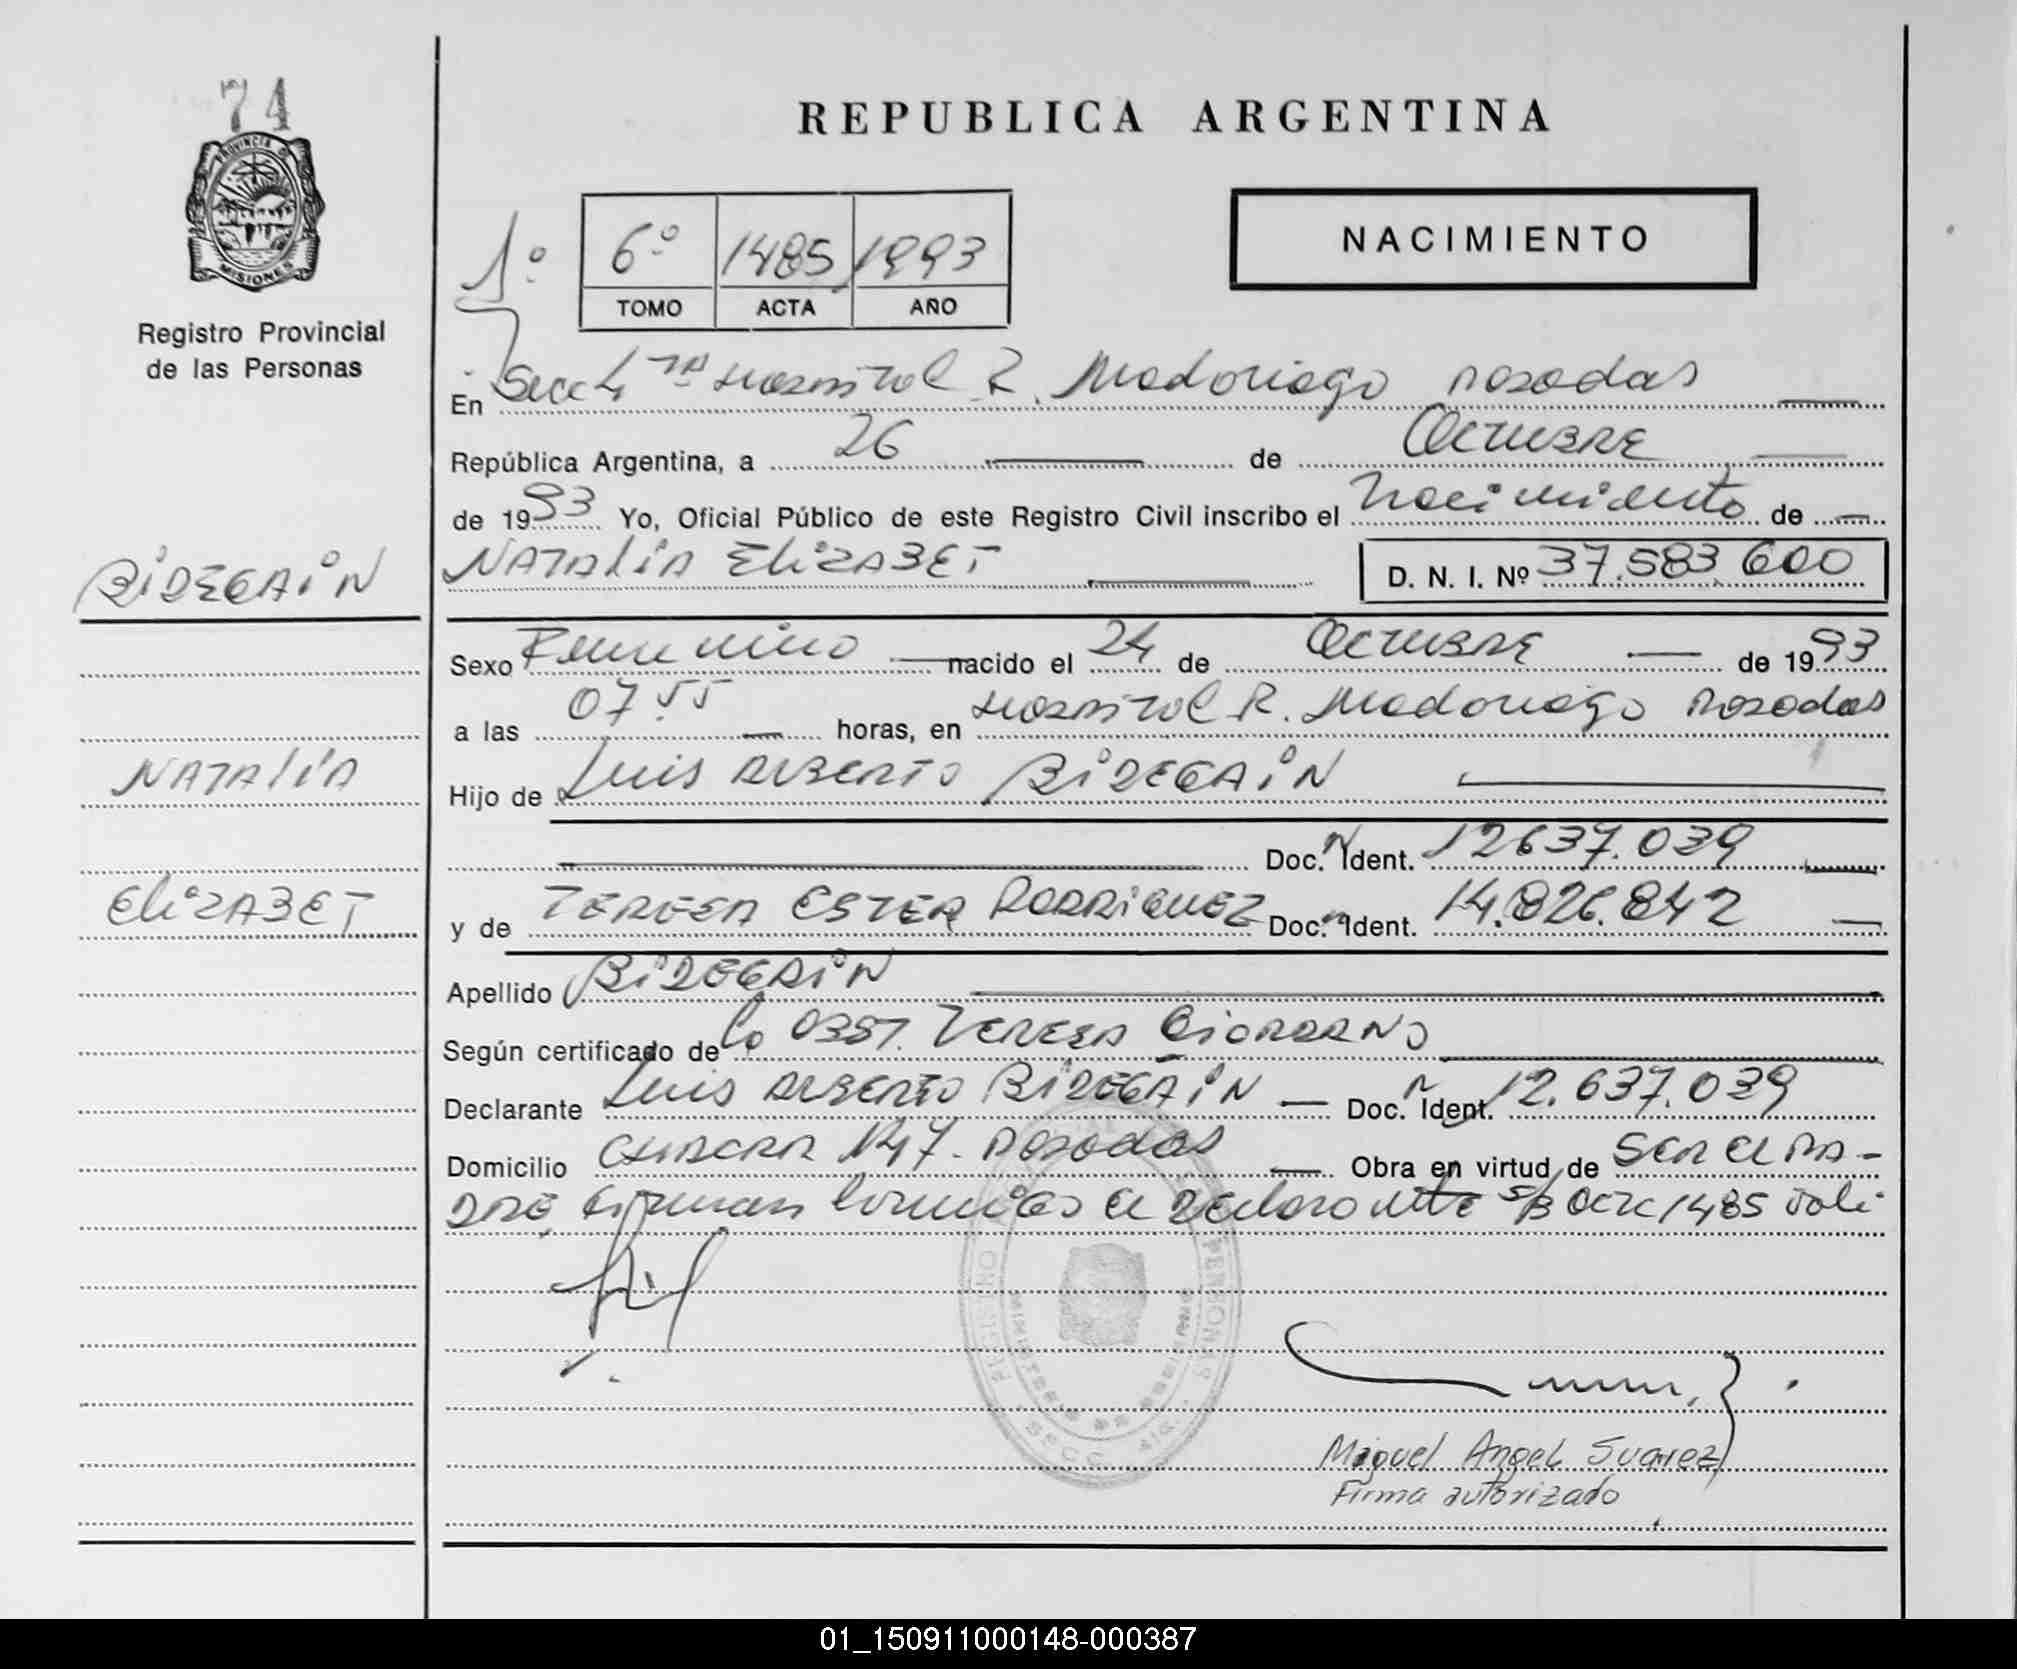 74
PROVINCIA DE
MISIONES
Registro Provincial
de las Personas
REPUBLICA ARGENTINA
NACIMIENTO
1º 6º 1485 1993
TOMO ACTA AÑO
En Secc 1ra Hospital R. Madariaga Posadas
República Argentina, a 26 de Octubre
de 1993 Yo, Oficial Público de este Registro Civil inscribo el Nacimiento de
BIDEGAIN
NATALIA ELIZABET D. N. I. Nº 37.583.600
Sexo Femenino nacido el 24 de Octubre de 1993
a las 07.55 horas, en Hospital R. Madariaga Posadas
NATALIA
Hijo de Luis Alberto BIDEGAIN
Doc. N Ident. 12637.039
ELIZABET
y de TERESA ESTER RODRIGUEZ Doc. N Ident. 14.826.842
Apellido BIDEGAIN
Según certificado de Teresa Giordano
Declarante Luis Alberto BIDEGAIN Doc. N Ident. 12.637.039
Domicilio CHACRA 147. Posadas Obra en virtud de Ser el Pa-
dre, Firman el declarante s/b acta 1485 Vale
REGISTRO PERSONAS
MISIONES
SECC.
Miguel Angel Suarez
Firma autorizado
01_150911000148-000387